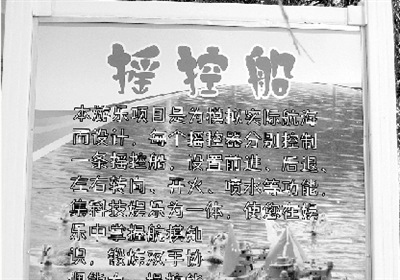 摇控船
本娱乐项目是为模拟实际航海
而设计，每个摇控器分别控制
一条摇控船，设置前进、后退、
左右转向、开火、喷水等功能，
集科技娱乐为一体，使您在娱
乐中掌握航模知
识，锻炼双手协